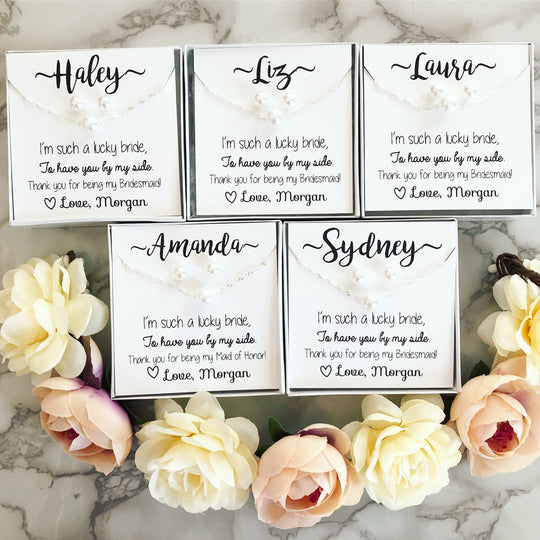 ~Haley~
I'm such a lucky bride,
To have you by my side.
Thank you for being my Bridesmaid!
♡ Love, Morgan
~Liz~
I'm such a lucky bride,
To have you by my side.
Thank you for being my Bridesmaid!
♡ Love, Morgan
~Laura~
I'm such a lucky bride,
To have you by my side.
Thank you for being my Bridesmaid!
♡ Love, Morgan
~Amanda~
I'm such a lucky bride,
To have you by my side.
Thank you for being my Maid of Honor!
♡ Love, Morgan
~Sydney~
I'm such a lucky bride,
To have you by my side.
Thank you for being my Bridesmaid!
♡ Love, Morgan